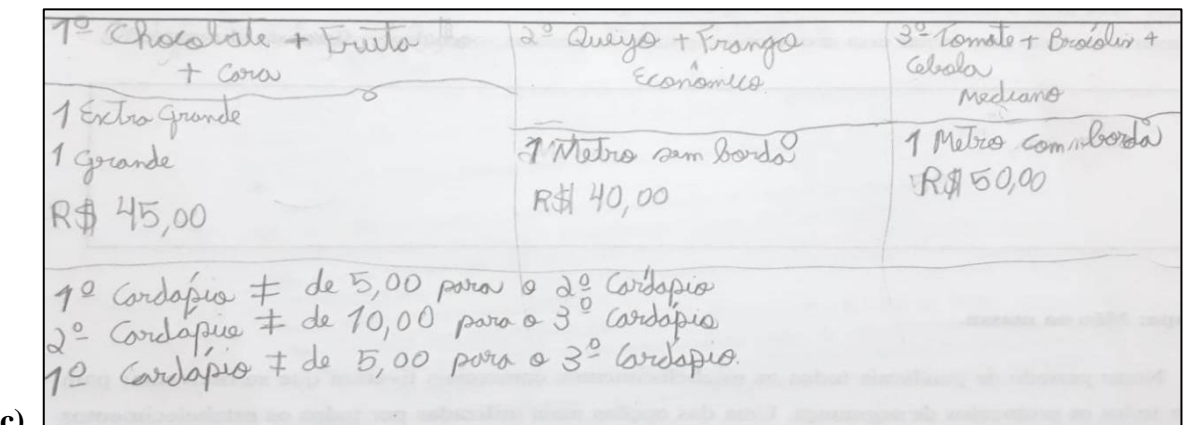 1º Chocolate + Fruta
+ Cara
2º Queijo + Frango
Econômico
3º Tomate + Brócolis +
Cebola
Mediano
1 Extra grande
1 grande
R$ 45,00
1 Metro sem borda
R$ 40,00
1 Metro com borda
R$ 50,00
1º Cardápio ≠ de 5,00 para o 2º Cardápio
2º Cardápio ≠ de 10,00 para o 3º cardápio
1º Cardápio ≠ de 5,00 para o 3º Cardápio.
c)